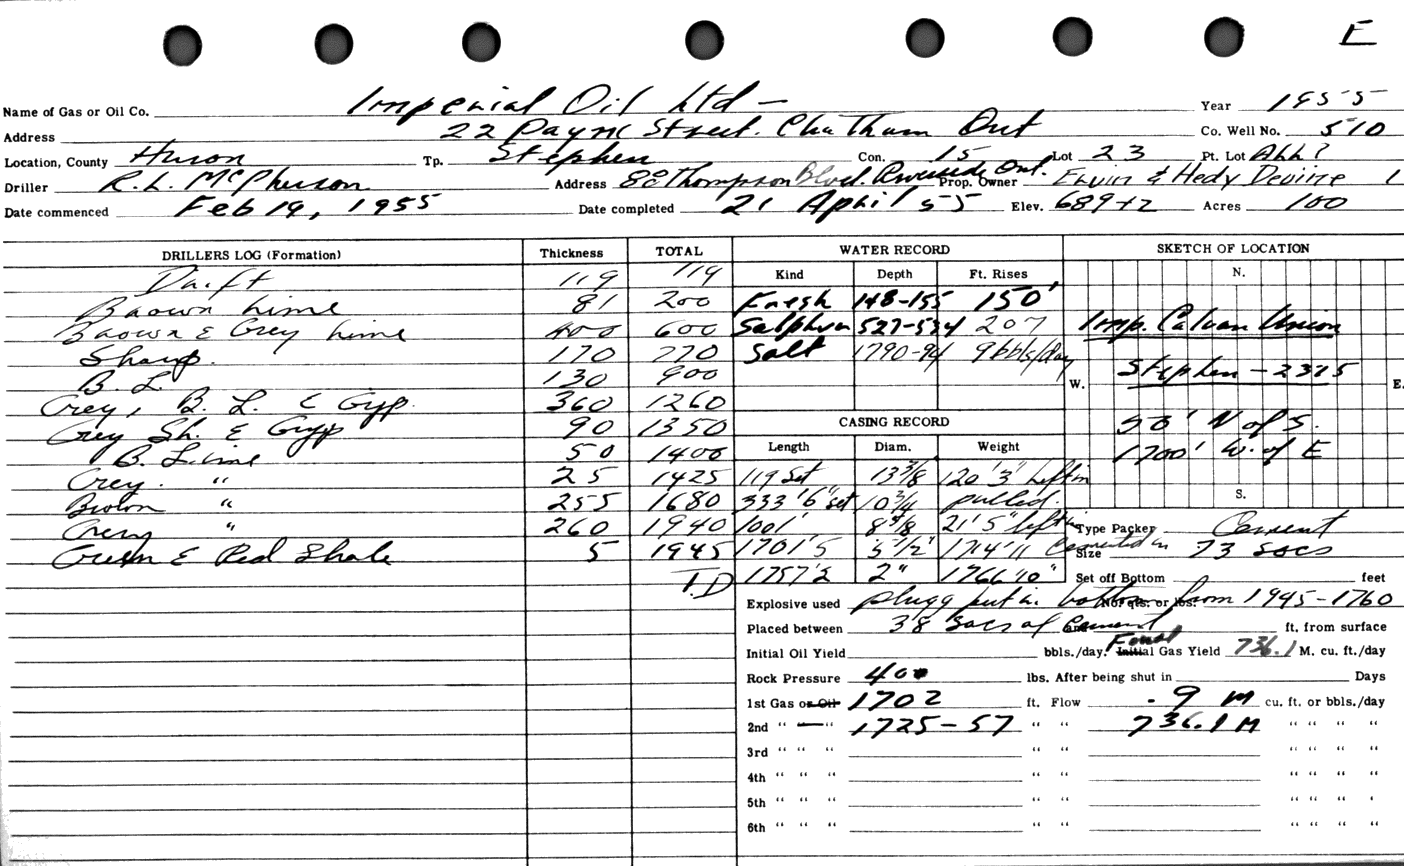 E
Name of Gas or Oil Co. Imperial Oil Ltd — Year 1955
Address 22 Payne Street. Chatham Ont Co. Well No. 510
Location, County Huron Tp. Stephen Con. 15 Lot 23 Pt. Lot All?
Driller R. L. McPherson Address Thompson Blvd. Riverside Ont. Prop. Owner Ervin & Hedy Devine
Date commenced Feb 19, 1955 Date completed 21 April 55 Elev. 689+2 Acres 100
DRILLERS LOG (Formation) Thickness TOTAL WATER RECORD SKETCH OF LOCATION
Kind Depth Ft. Rises N.
Drift 119 119
Brown Lime 81 200 Fresh 148-155 150'
Brown & Grey Lime 400 600 Salphur 527-534 207 Imp. Calvan Union
Sharp. 170 770 Salt 1790-94 9 bbls/day
B. L. 130 900 W. Stephen - 23 15 E.
Grey, B. L. & Gyp. 360 1260
Grey Sh. & Gyp 90 1350 CASING RECORD 50' N of S.
B. Lime 50 1400 Length Diam. Weight 1700' W. of E
Grey. " 25 1425 119 Set 13 3/8 120' 3" Left in
Brown " 255 1680 333' 6" set 10 3/4 pulled. S.
Grey " 260 1940 1001' 8 5/8 21' 5" left in Type Packer Cement
Green & Red Shale 5 1945 1701' 5 5 1/2" 1714' 11 Cemented in Size 73 sacs
T.D 1757' 2 2" 1766' 10" Set off Bottom feet
Explosive used plugg put in bottom No. qts. or lbs. from 1945-1760
Placed between 38 sacs of Cement and ft. from surface
Initial Oil Yield bbls./day. Final Initial Gas Yield 736.1 M. cu. ft./day
Rock Pressure 400 lbs. After being shut in Days
1st Gas or Oil 1702 ft. Flow .9 M cu. ft. or bbls./day
2nd " — " 1725-57 " " 736.1 M " " " "
3rd " " " " " " " " "
4th " " " " " " " " "
5th " " " " " " " " "
6th " " " " " " " " "